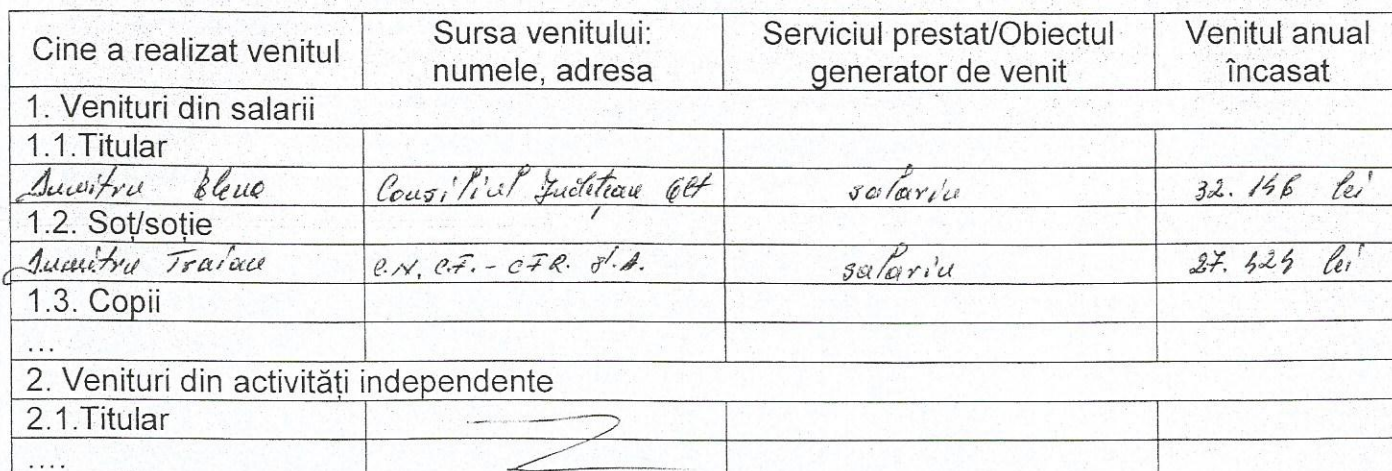 Cine a realizat venitul | Sursa venitului: numele, adresa | Serviciul prestat/Obiectul generator de venit | Venitul anual încasat
1. Venituri din salarii
1.1.Titular
Dumitru Elena | Consiliul Județean Olt | salariu | 32. lei
1.2. Soț/soție
Dumitru Traian | C.N. C.F. - CFR. S.A. | salariu | 27. lei
1.3. Copii
...
2. Venituri din activități independente
2.1.Titular
....